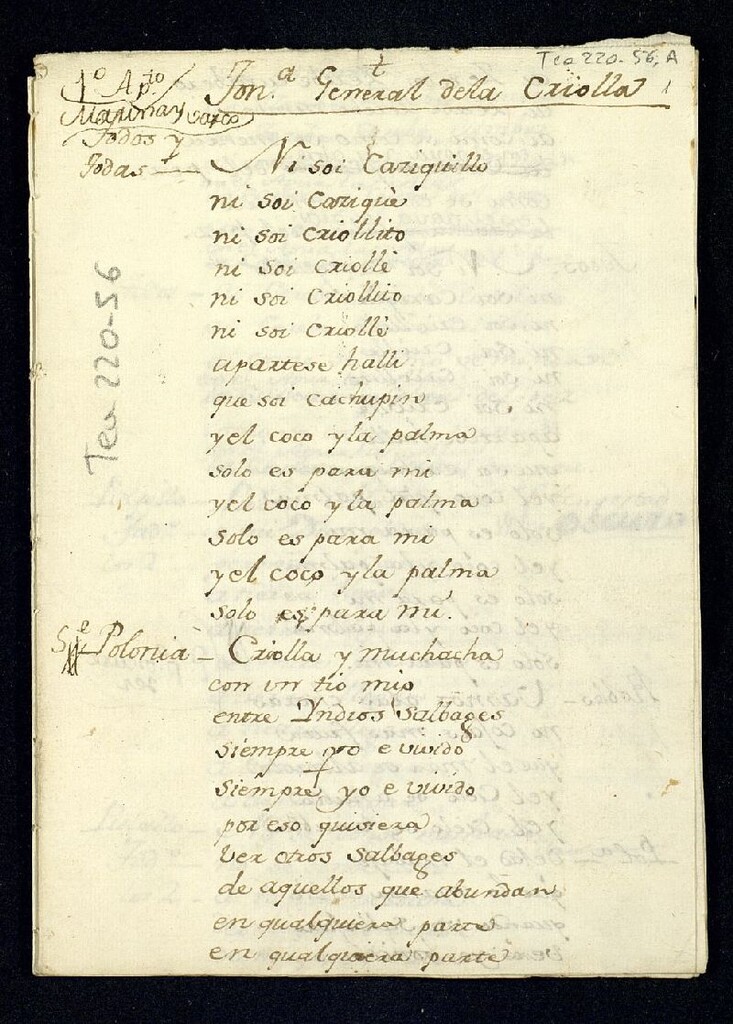 Tea 220-56, A
1º Apto
Marina y barco
Ton.a General dela Criolla 1
Todos y
Todas — Ni soi Cariquillo
ni soi Carique
ni soi Criollito
ni soi Criollè
ni soi Criollito
ni soi Criollè
apartese halli
que soi Cachupin
yel coco yla palma
solo es para mi
yel coco yla palma
solo es para mi
yel coco yla palma
solo es para mi.
Polonia – Criolla y muchacha
con un tio mio
entre Yndios Salbages
siempre yo e vivido
siempre yo e vivido
por eso quisiera
ver otros Salbages
de aquellos que abundan
en qualquiera parte
en qualquiera parte
Tea 220-56